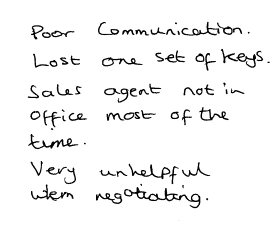 Poor Communication.
Lost one set of keys.
Sales agent not in
office most of the
time.
Very unhelpful
when negotiating.